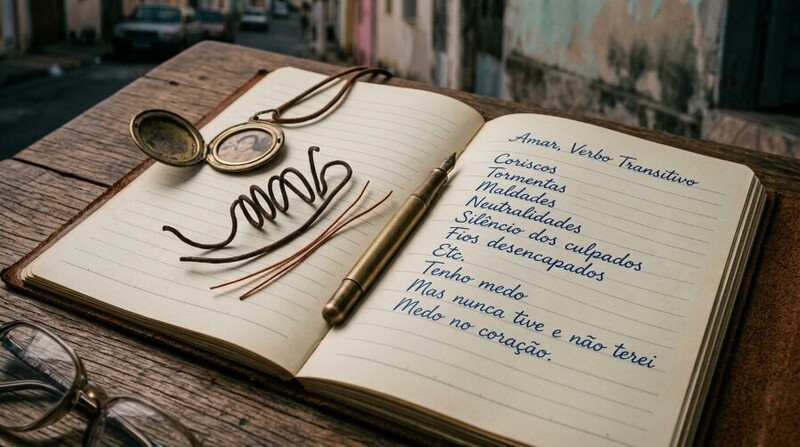 Amar, Verbo Transitivo
Coriscos
Tormentas
Maldades
Neutralidades
Silêncio dos culpados
Fios desencapados
Etc.
Tenho medo
Mas nunca tive e não terei
Medo no coração.